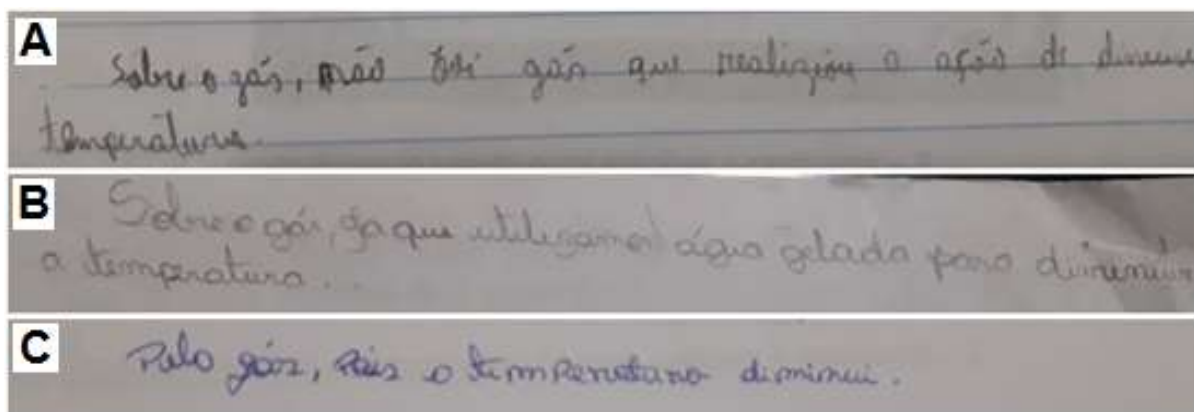 A
Sobre o gás, não foi gás que realizou a ação de
temperatura.
B
Sobre o gás, já que utilizamos água gelada para diminuir
a temperatura...
C
Pelo gás, pois a temperatura diminui.